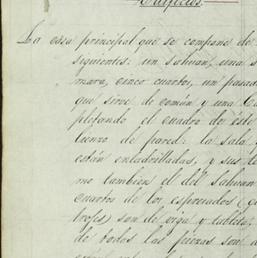 Edificios.
La casa principal que se compone de
siguientes: un sahuan, una s
mara, cinco cuartos, un pasad
que sirve de comun y una Ca
pletando el cuadro de este
lienzo de pared: la sala y
estan enladrilladas, y sus te
mo tambien el del sahuan
cuartos de los espresados (co
trofes) son de viga y tablet
de todas las piezas son d